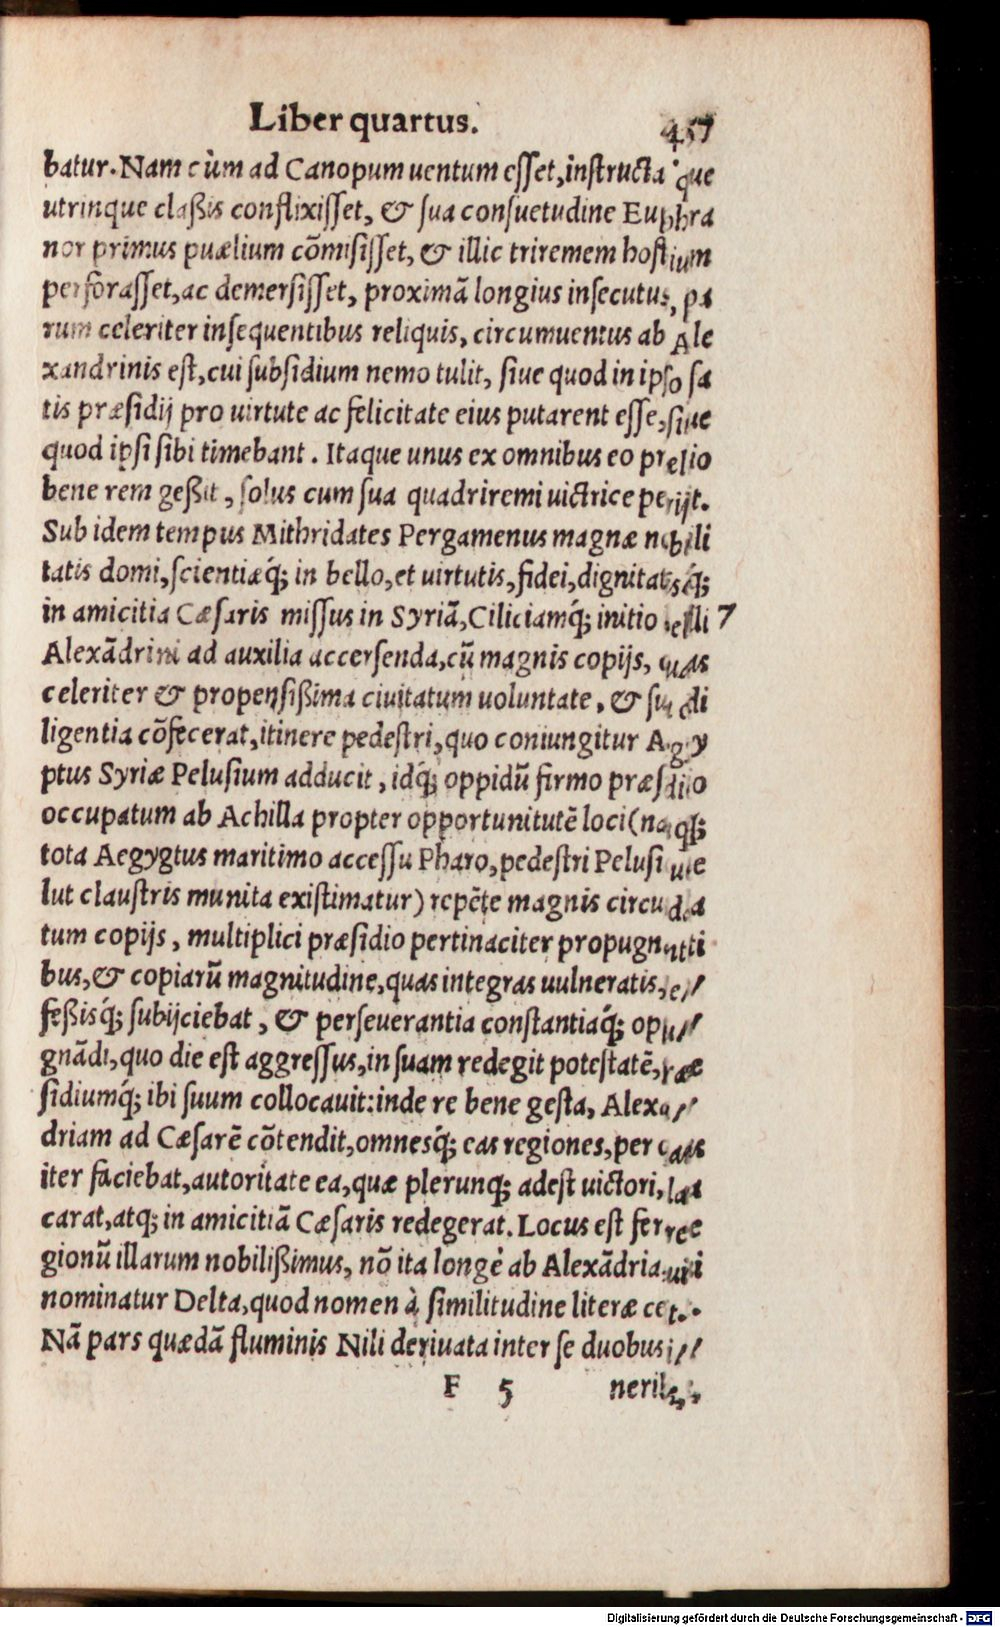 Liber quartus. 457
batur. Nam cùm ad Canopum uentum esset, instructaque
utrinque claßis conflixisset, & sua consuetudine Euphra
nor primus puælium cõmisisset, & illic triremem hostium
perforasset, ac demersisset, proximã longius insecutus, pa
rum celeriter insequentibus reliquis, circumuentus ab Ale
xandrinis est, cui subsidium nemo tulit, siue quod in ipso sa
tis præsidij pro uirtute ac felicitate eius putarent esse, siue
quod ipsi sibi timebant. Itaque unus ex omnibus eo prelio
bene rem geßit, solus cum sua quadriremi uictrice perijt.
Sub idem tempus Mithridates Pergamenus magnæ nobili
tatis domi, scientiæq́; in bello, et uirtutis, fidei, dignitatisq́;
in amicitia Cæsaris missus in Syriã, Ciliciamq́; initio belli 7
Alexãdrini ad auxilia accersenda, cũ magnis copijs, quas
celeriter & propensißima ciuitatum uoluntate, & sua di
ligentia cõfecerat, itinere pedestri, quo coniungitur Aegy
ptus Syriæ Pelusium adducit, idq́; oppidũ firmo præsidio
occupatum ab Achilla propter opportunitutẽ loci (namq́;
tota Aegygtus maritimo accessu Pharo, pedestri Pelusio ue
lut claustris munita existimatur) repẽte magnis circunda
tum copijs, multiplici præsidio pertinaciter propugnanti
bus, & copiarũ magnitudine, quas integras uulneratis, de//
feßisq́; subijciebat, & perseuerantia constantiaq́; oppu//
gnãdi, quo die est aggressus, in suam redegit potestatẽ, præ
sidiumq́; ibi suum collocauit: inde re bene gesta, Alexan//
driam ad Cæsarẽ cõtendit, omnesq́; eas regiones, per quas
iter faciebat, autoritate ea, quæ plerunq; adest uictori, pla
carat, atq; in amicitiã Cæsaris redegerat. Locus est fere re
gionũ illarum nobilißimus, nõ ita longè ab Alexãdria, qui
nominatur Delta, quod nomen à similitudine literæ cepit.
Nã pars quædã fluminis Nili deriuata inter se duobus iti//
F 5 neribus
Digitalisierung gefördert durch die Deutsche Forschungsgemeinschaft - DFG